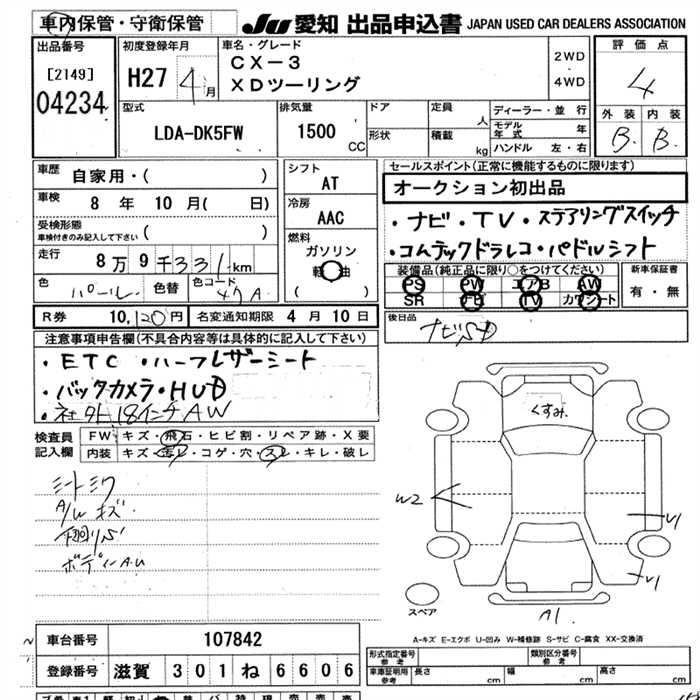 車内保管・守衛保管
JU 愛知 出品申込書 JAPAN USED CAR DEALERS ASSOCIATION
出品番号
[2149]
04234
初度登録年月
H27 4月
車名・グレード
CX-3
XDツーリング
2WD
4WD
評価点
4
外装 内装
B B
型式
LDA-DK5FW
排気量
1500
CC
ドア
形状
定員
人
積載
kg
ディーラー・並行
モデル年式 年
ハンドル 左・右
車歴
自家用・( )
車検
8 年 10 月( 日)
受検形態
車検付きのみ記入して下さい ( )
走行
8万9千331km
色
パール
色替
色コード
47A
シフト
AT
冷房
AAC
燃料
ガソリン
軽油
( )
セールスポイント(正常に機能するものに限ります)
オークション初出品
・ナビ・TV・ステアリングスイッチ
・コムテックドラレコ・パドルシフト
装備品(純正品に限り○をつけてください)
PS PW エアB AW
SR ナビ TV カワシート
新車保証書
有・無
R券 10,120円 名変通知期限 4月10日
後日品
ナビSD
注意事項申告欄(不具合内容等は具体的に記入して下さい)
・ETC・ハーフレザーシート
・バックカメラ・HUD
・社外18インチAW
検査員
記入欄
FW キズ・飛石・ヒビ割・リペア跡・X要
内装 キズ・汚レ・コゲ・穴・スレ・キレ・破レ
シートシワ
A/Wキズ
ボディーA.U
くすみ
W2
U1
U1
A1
スペア
A-キズ E-エクボ U-凹み W-補修跡 S-サビ C-腐食 XX-交換済
車台番号 107842
登録番号 滋賀 301 ね 6606
形式指定番号
参考
類別区分番号
参考
車庫証明用
参考
長さ cm 幅 cm 高さ cm